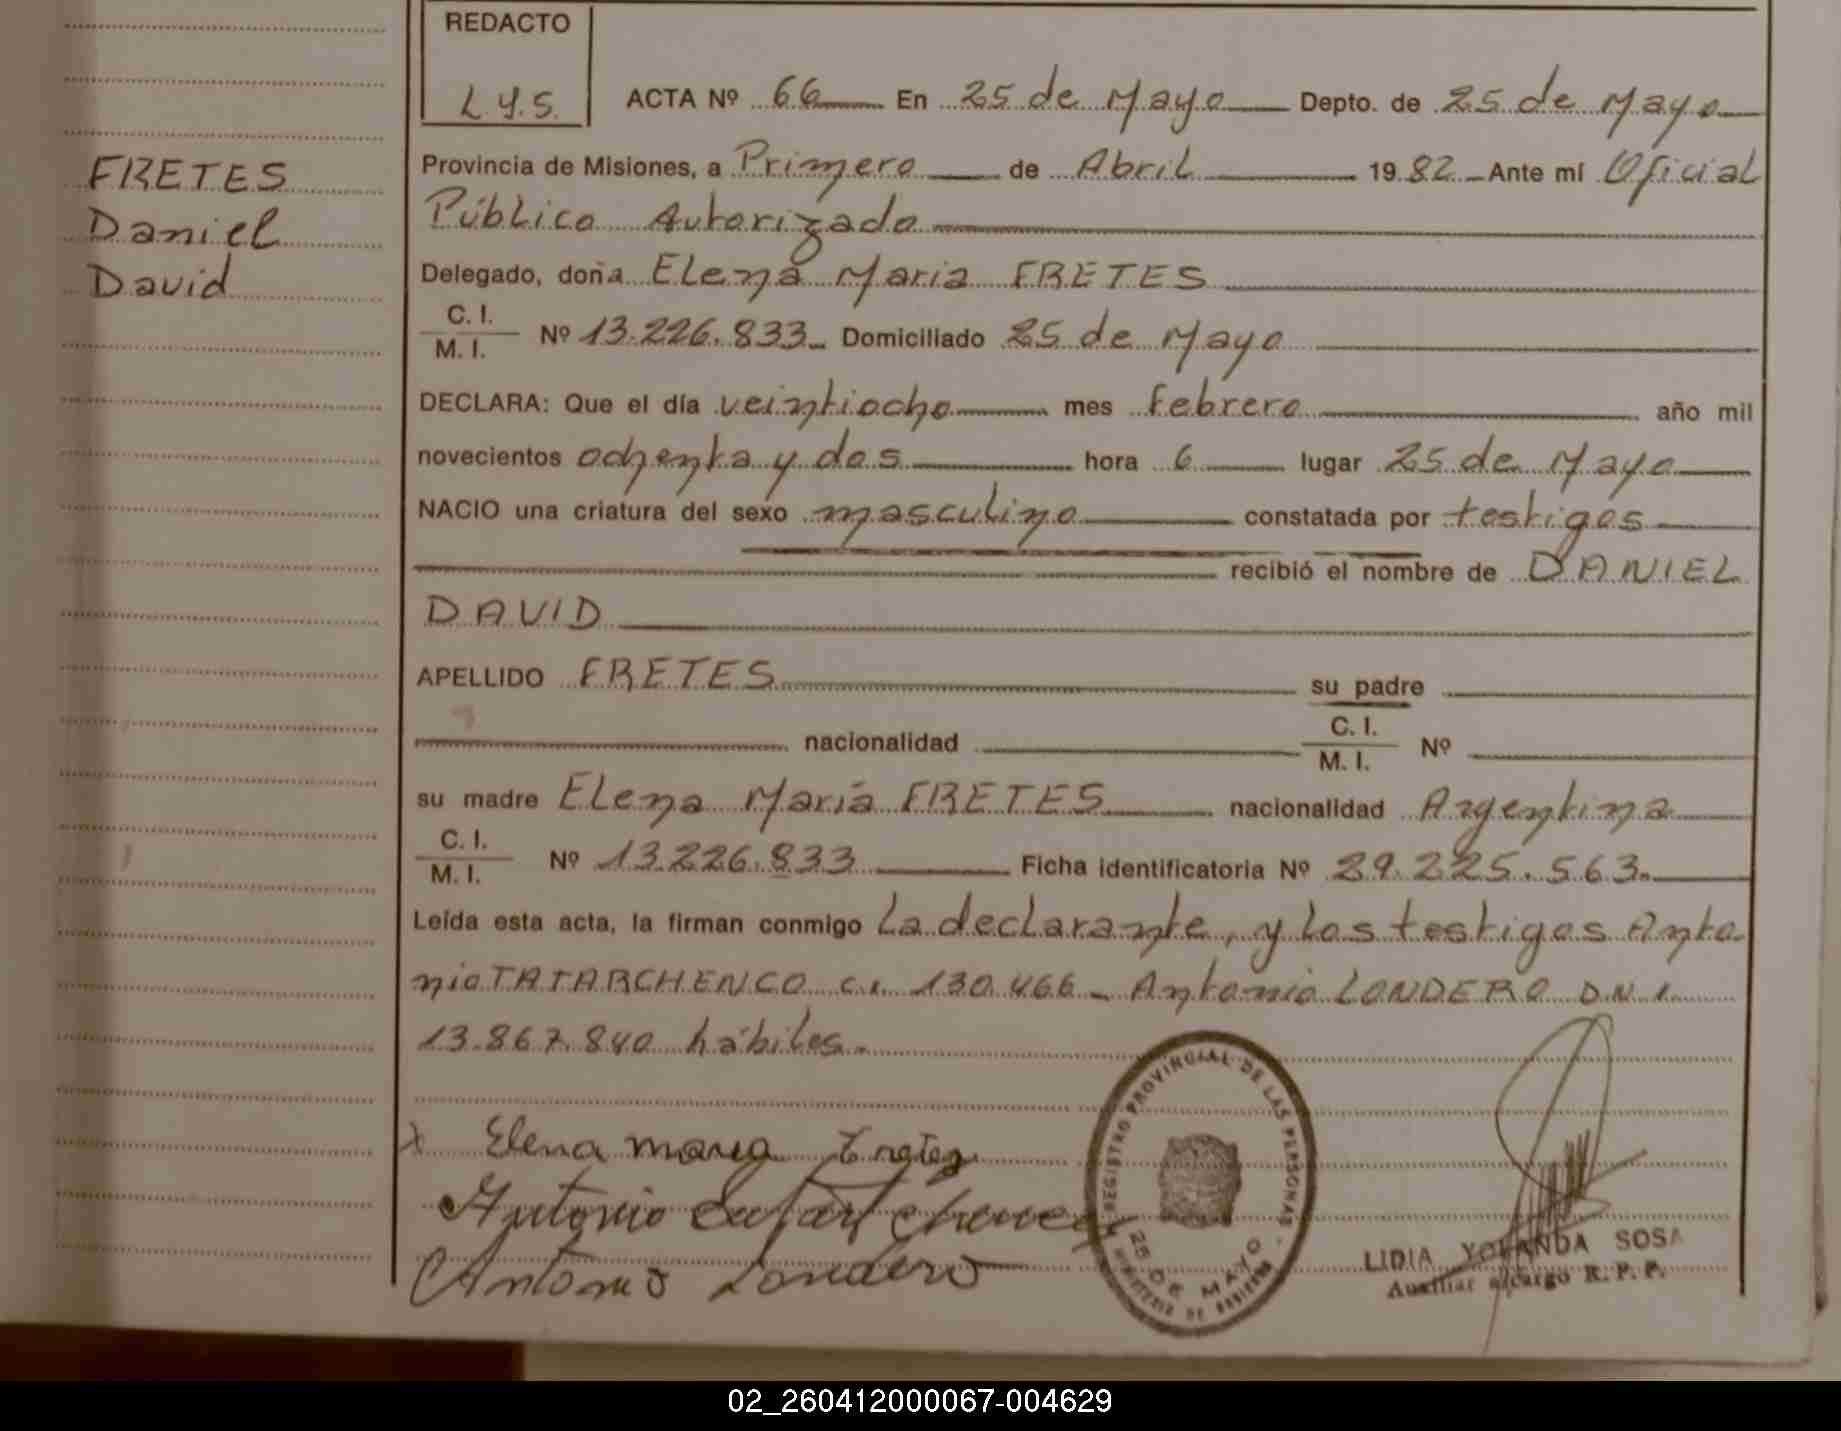 REDACTO
L.Y.S.
ACTA Nº 66 En 25 de Mayo Depto. de 25 de Mayo
FRETES
Daniel
David
Provincia de Misiones, a Primero de Abril 1982 Ante mí Oficial
Público Autorizado
Delegado, doña Elena Maria FRETES
C. I.
M. I. Nº 13.226.833 Domiciliado 25 de Mayo
DECLARA: Que el día veintiocho mes Febrero año mil
novecientos ochenta y dos hora 6 lugar 25 de Mayo
NACIO una criatura del sexo masculino constatada por testigos
recibió el nombre de DANIEL
DAVID
APELLIDO FRETES su padre
nacionalidad C. I.
M. I. Nº
su madre Elena María FRETES nacionalidad Argentina
C. I.
M. I. Nº 13.226.833 Ficha identificatoria Nº 29.225.563.
Leída esta acta, la firman conmigo la declarante, y los testigos Anto
nio TATARCHENCO C.I. 130.466 - Antonio LONDERO D.N.I.
13.867.840 hábiles.
x Elena maria Fretes
Antonio Tatarchenco
Antonio Londero
REGISTRO PROVINCIAL DE LAS PERSONAS
25 DE MAYO
MINISTERIO DE GOBIERNO
LIDIA YOLANDA SOSA
Auxiliar a/cargo R. P. P.
02_260412000067-004629